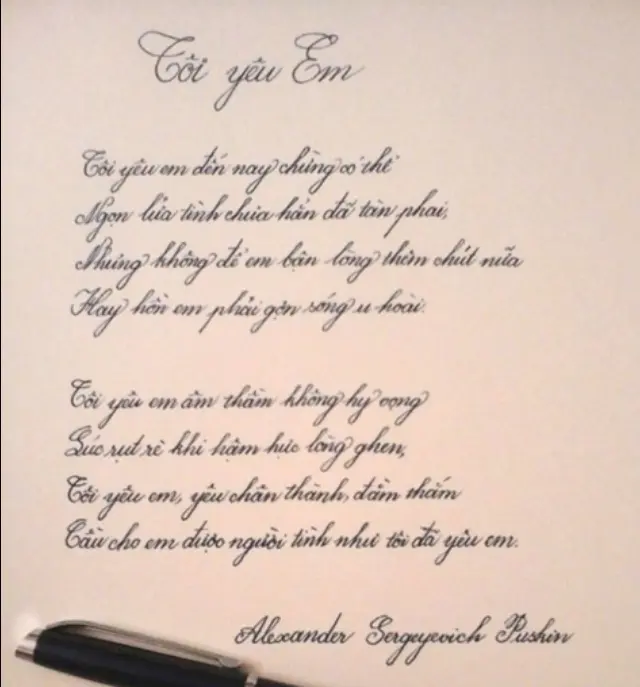 Tôi yêu Em
Tôi yêu em đến nay chừng có thể
Ngọn lửa tình chưa hẳn đã tàn phai,
Nhưng không để em bận lòng thêm chút nữa
Hay hồn em phải gợn sóng u hoài.
Tôi yêu em âm thầm không hy vọng
Lúc rụt rè khi hậm hực lòng ghen,
Tôi yêu em, yêu chân thành, đằm thắm
Cầu cho em được người tình như tôi đã yêu em.
Alexander Sergeyevich Pushin